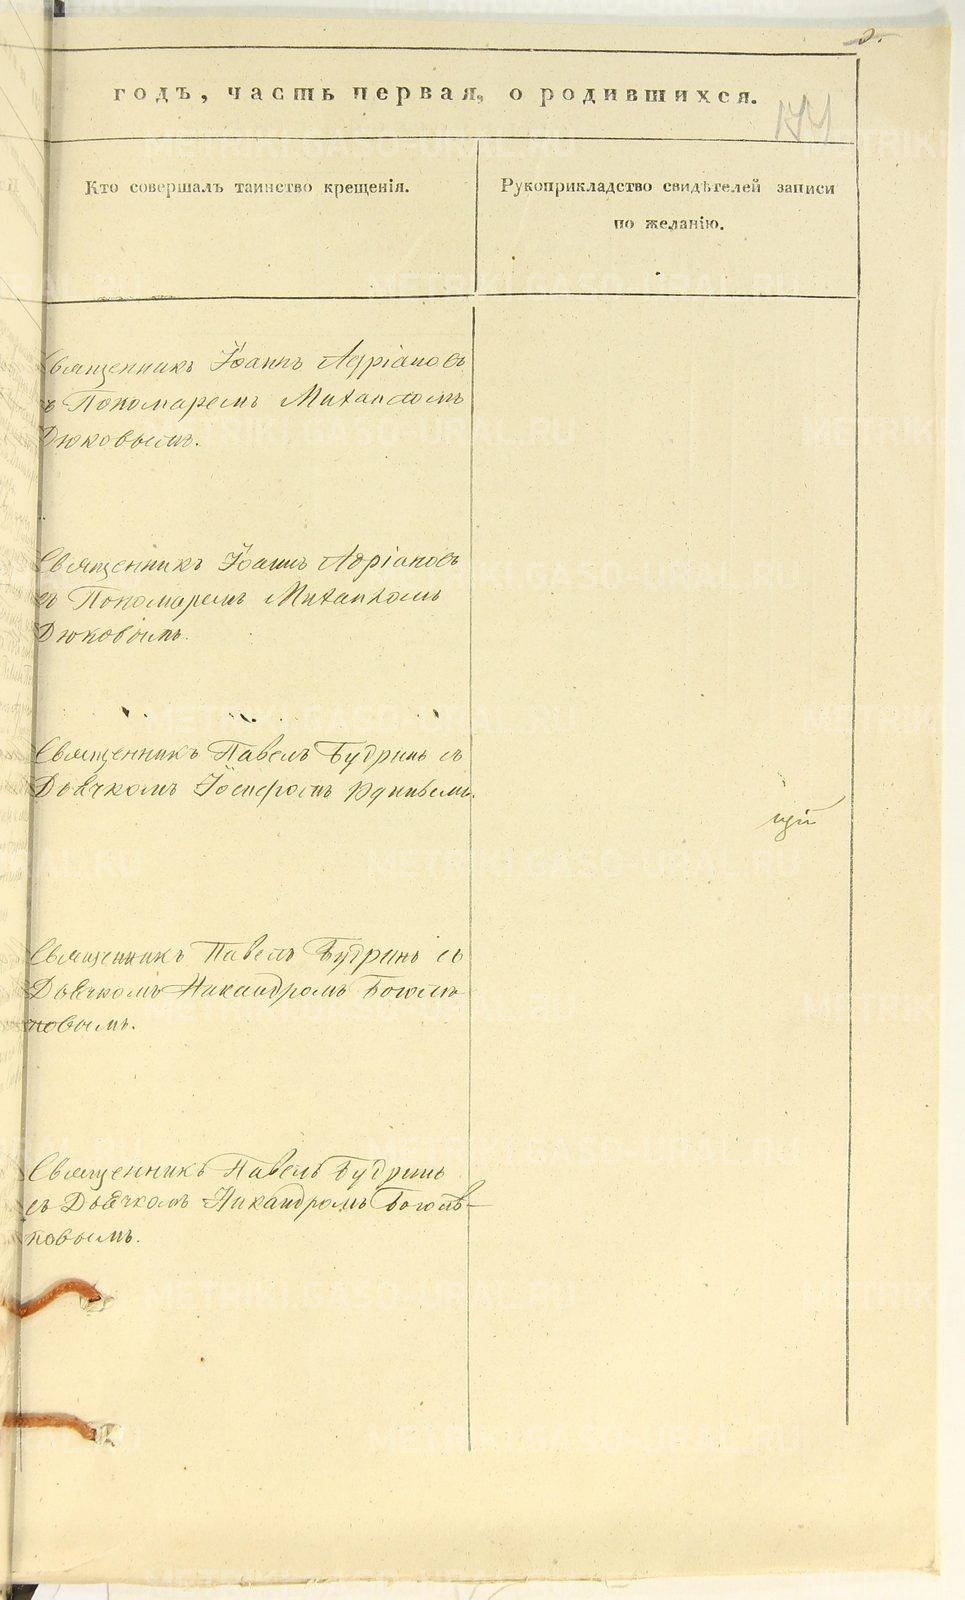 годъ, часть первая, о родившихся.
177
Кто совершалъ таинство крещенія.
Рукоприкладство свидѣтелей записи
по желанію.
Священникъ Іоаннъ Адріановъ
съ Пономаремъ Михаиломъ
Дюковымъ.
Священникъ Іоаннъ Адріановъ
съ Пономаремъ Михаиломъ
Дюковымъ.
Священникъ Павелъ Будринъ съ
Дьячкомъ Іосифомъ
Священникъ Павелъ Будринъ съ
Дьячкомъ Никандромъ Боголѣ-
повымъ.
Священникъ Павелъ Будринъ
съ Дьячкомъ Никандромъ Боголѣ-
повымъ.
METRIKI.GASO-URAL.RU